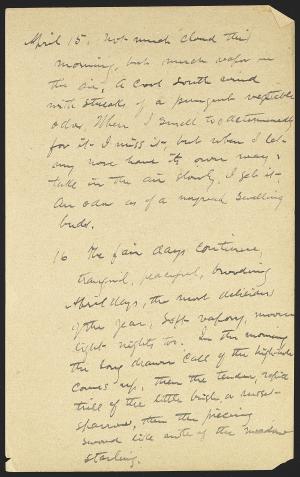 April 15. Not much cloud this
morning, but much vapor in
the air; A cool South wind
with streaks of a pungent vegetable
odor. When I smell too determinedly
for it I miss it, but when I let
my nose have its own way &
take in the air slowly, I get it,
An odor as of a myriad swelling
buds.
16 The fair days continue,
tranquil, peaceful, brooding
April days, the most delicious
of the year, Soft vapory, moon
light nights too. In the morning
the long drawn call of the high-hole
comes up, then the tender, rapid
trill of the little bush
sparrow, then the piercing
sword like note of the meadow
starling.